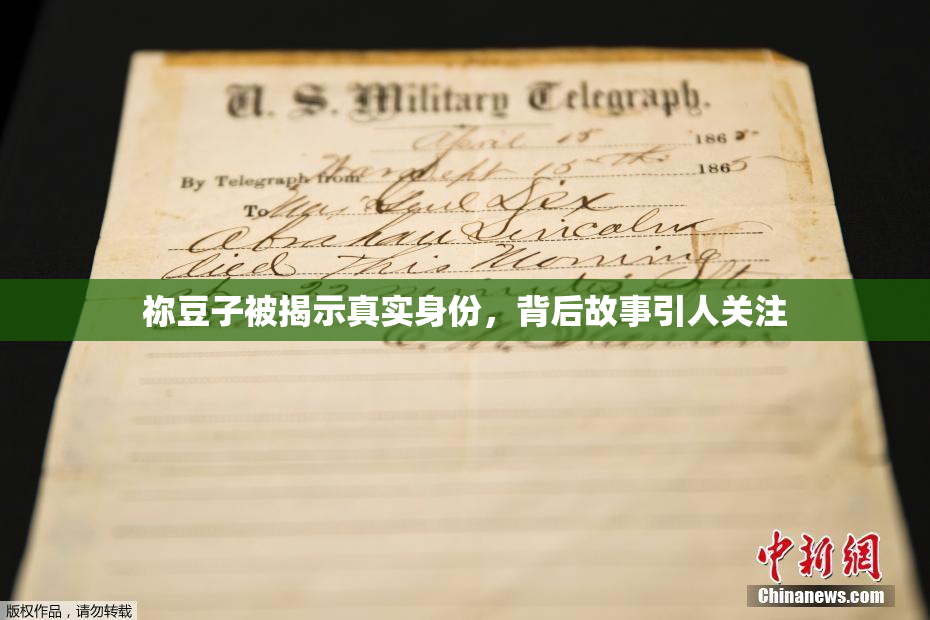 U. S. Military Telegraph.
April 15 1865
By Telegraph from War Dept 15th 1865
To Maj Genl Dix
Abraham Lincoln
died This Morning
22 minutes after
祢豆子被揭示真实身份，背后故事引人关注
E. M. Stanton
中新網
Chinanews.com
版权作品，请勿转载